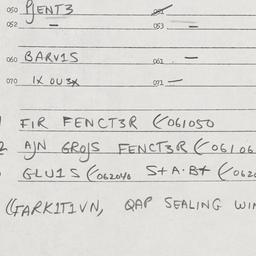 050 BENT3 051
052 — 053 —
060 BARV1S 061 —
070 1X OU 3X 071 —
FIR FENCT3R (/061050
2 AJN GROJS FENCT3R (/06106
GLU1S (/062040 S+A·B+ (/062
((FARK1T1VN, QAP SEALING WIN